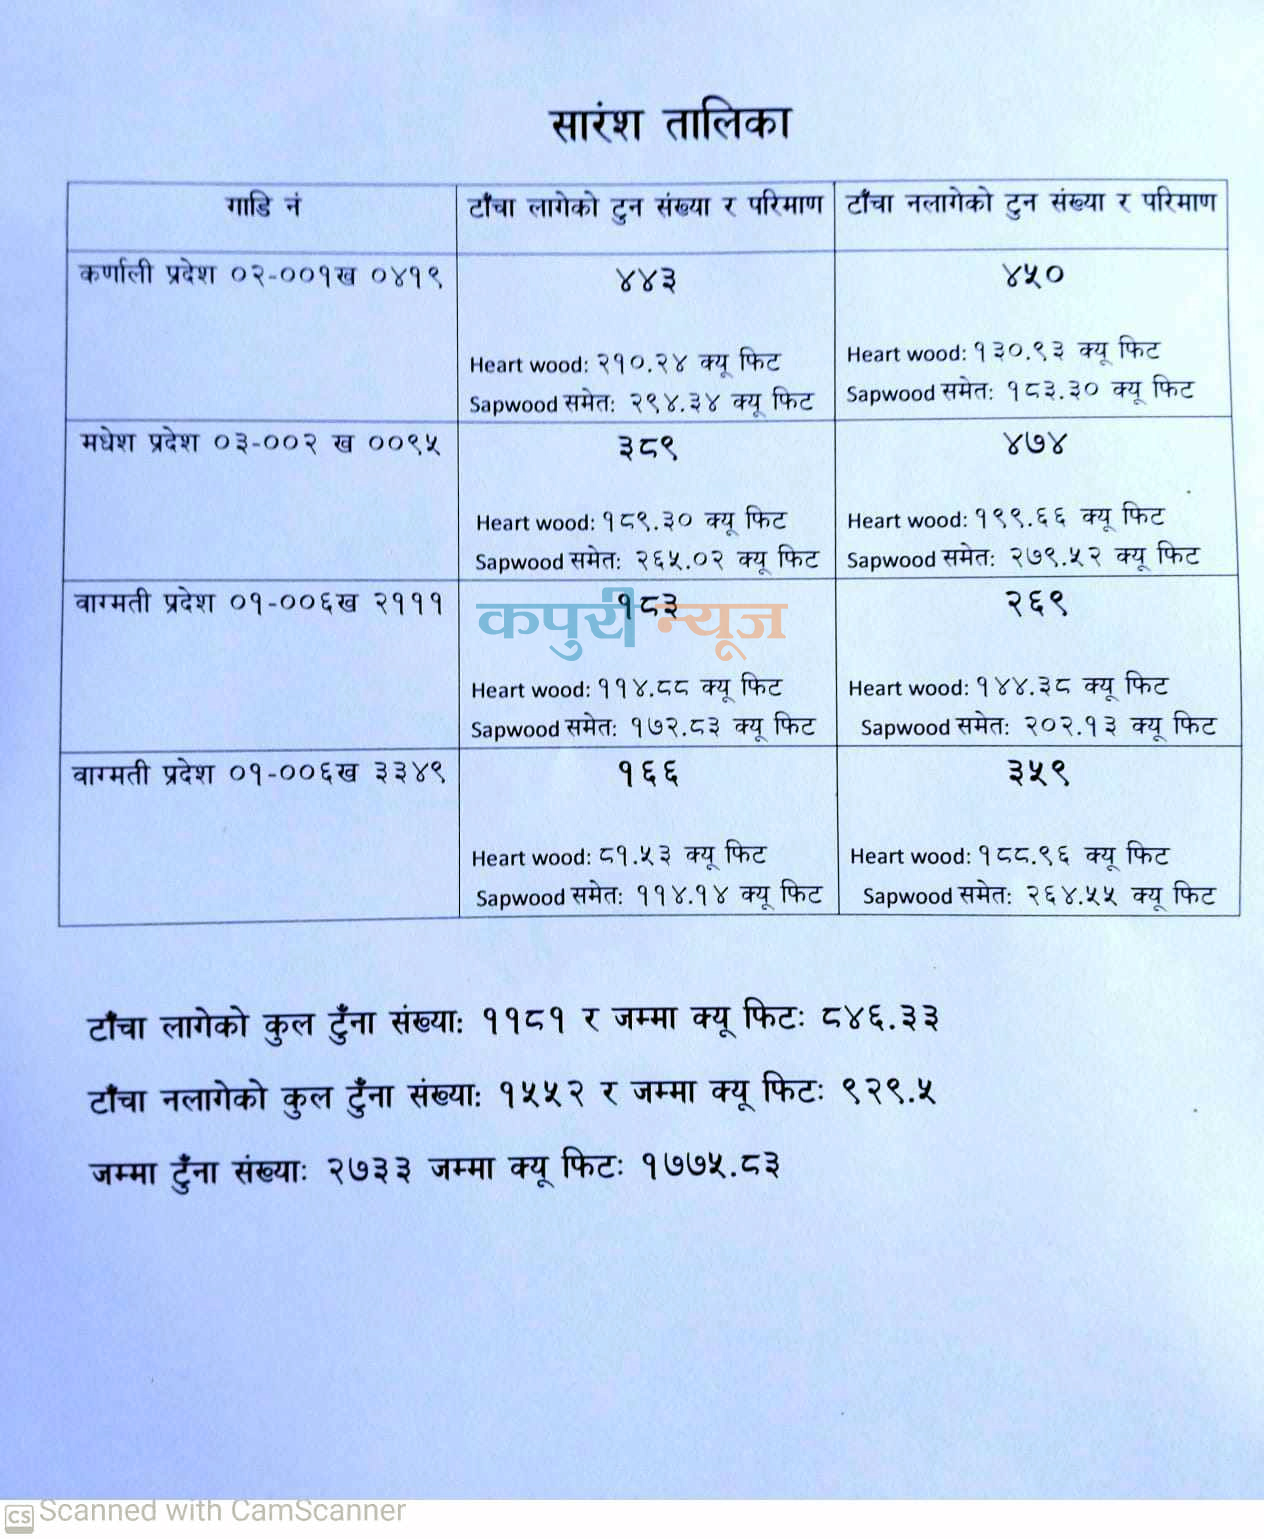 सारंश तालिका
गाडि नं
टाँचा लागेको टुन संख्या र परिमाण
टाँचा नलागेको टुन संख्या र परिमाण
कर्णाली प्रदेश ०२-००१ख ०४१९
४४३
Heart wood: २१०.२४ क्यू फिट
Sapwood समेत: २९४.३४ क्यू फिट
४५०
Heart wood: १३०.९३ क्यू फिट
Sapwood समेत: १८३.३० क्यू फिट
मधेश प्रदेश ०३-००२ ख ००९५
३८९
Heart wood: १८९.३० क्यू फिट
Sapwood समेत: २६५.०२ क्यू फिट
४७४
Heart wood: १९९.६६ क्यू फिट
Sapwood समेत: २७९.५२ क्यू फिट
वाग्मती प्रदेश ०१-००६ख २१११
१८३
कपुरी न्यूज
Heart wood: ११४.८८ क्यू फिट
Sapwood समेत: १७२.८३ क्यू फिट
२६९
Heart wood: १४४.३८ क्यू फिट
Sapwood समेत: २०२.१३ क्यू फिट
वाग्मती प्रदेश ०१-००६ख ३३४९
१६६
Heart wood: ८१.५३ क्यू फिट
Sapwood समेत: ११४.१४ क्यू फिट
३५९
Heart wood: १८८.९६ क्यू फिट
Sapwood समेत: २६४.५५ क्यू फिट
टाँचा लागेको कुल टुँना संख्या: ११८१ र जम्मा क्यू फिट: ८४६.३३
टाँचा नलागेको कुल टुँना संख्या: १५५२ र जम्मा क्यू फिट: ९२९.५
जम्मा टुँना संख्या: २७३३ जम्मा क्यू फिट: १७७५.८३
CS Scanned with CamScanner